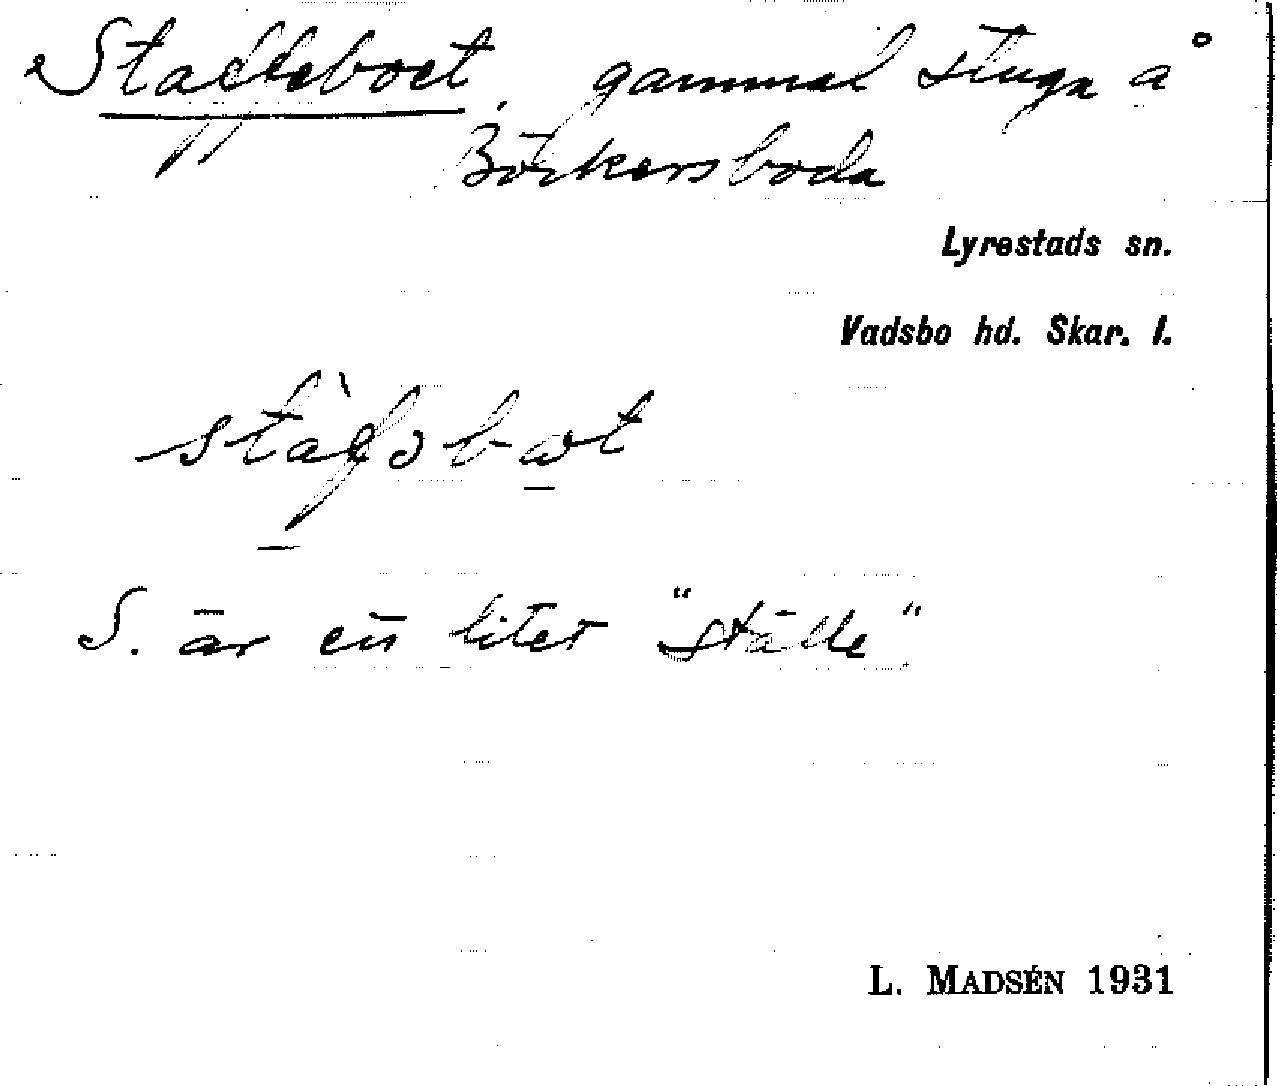 Staffeboet, gammal stuga å
Börkersboda
Lyrestads sn.
Vadsbo hd. Skar. l.
S. är en litet "ställe"
L. MADSÉN 1931